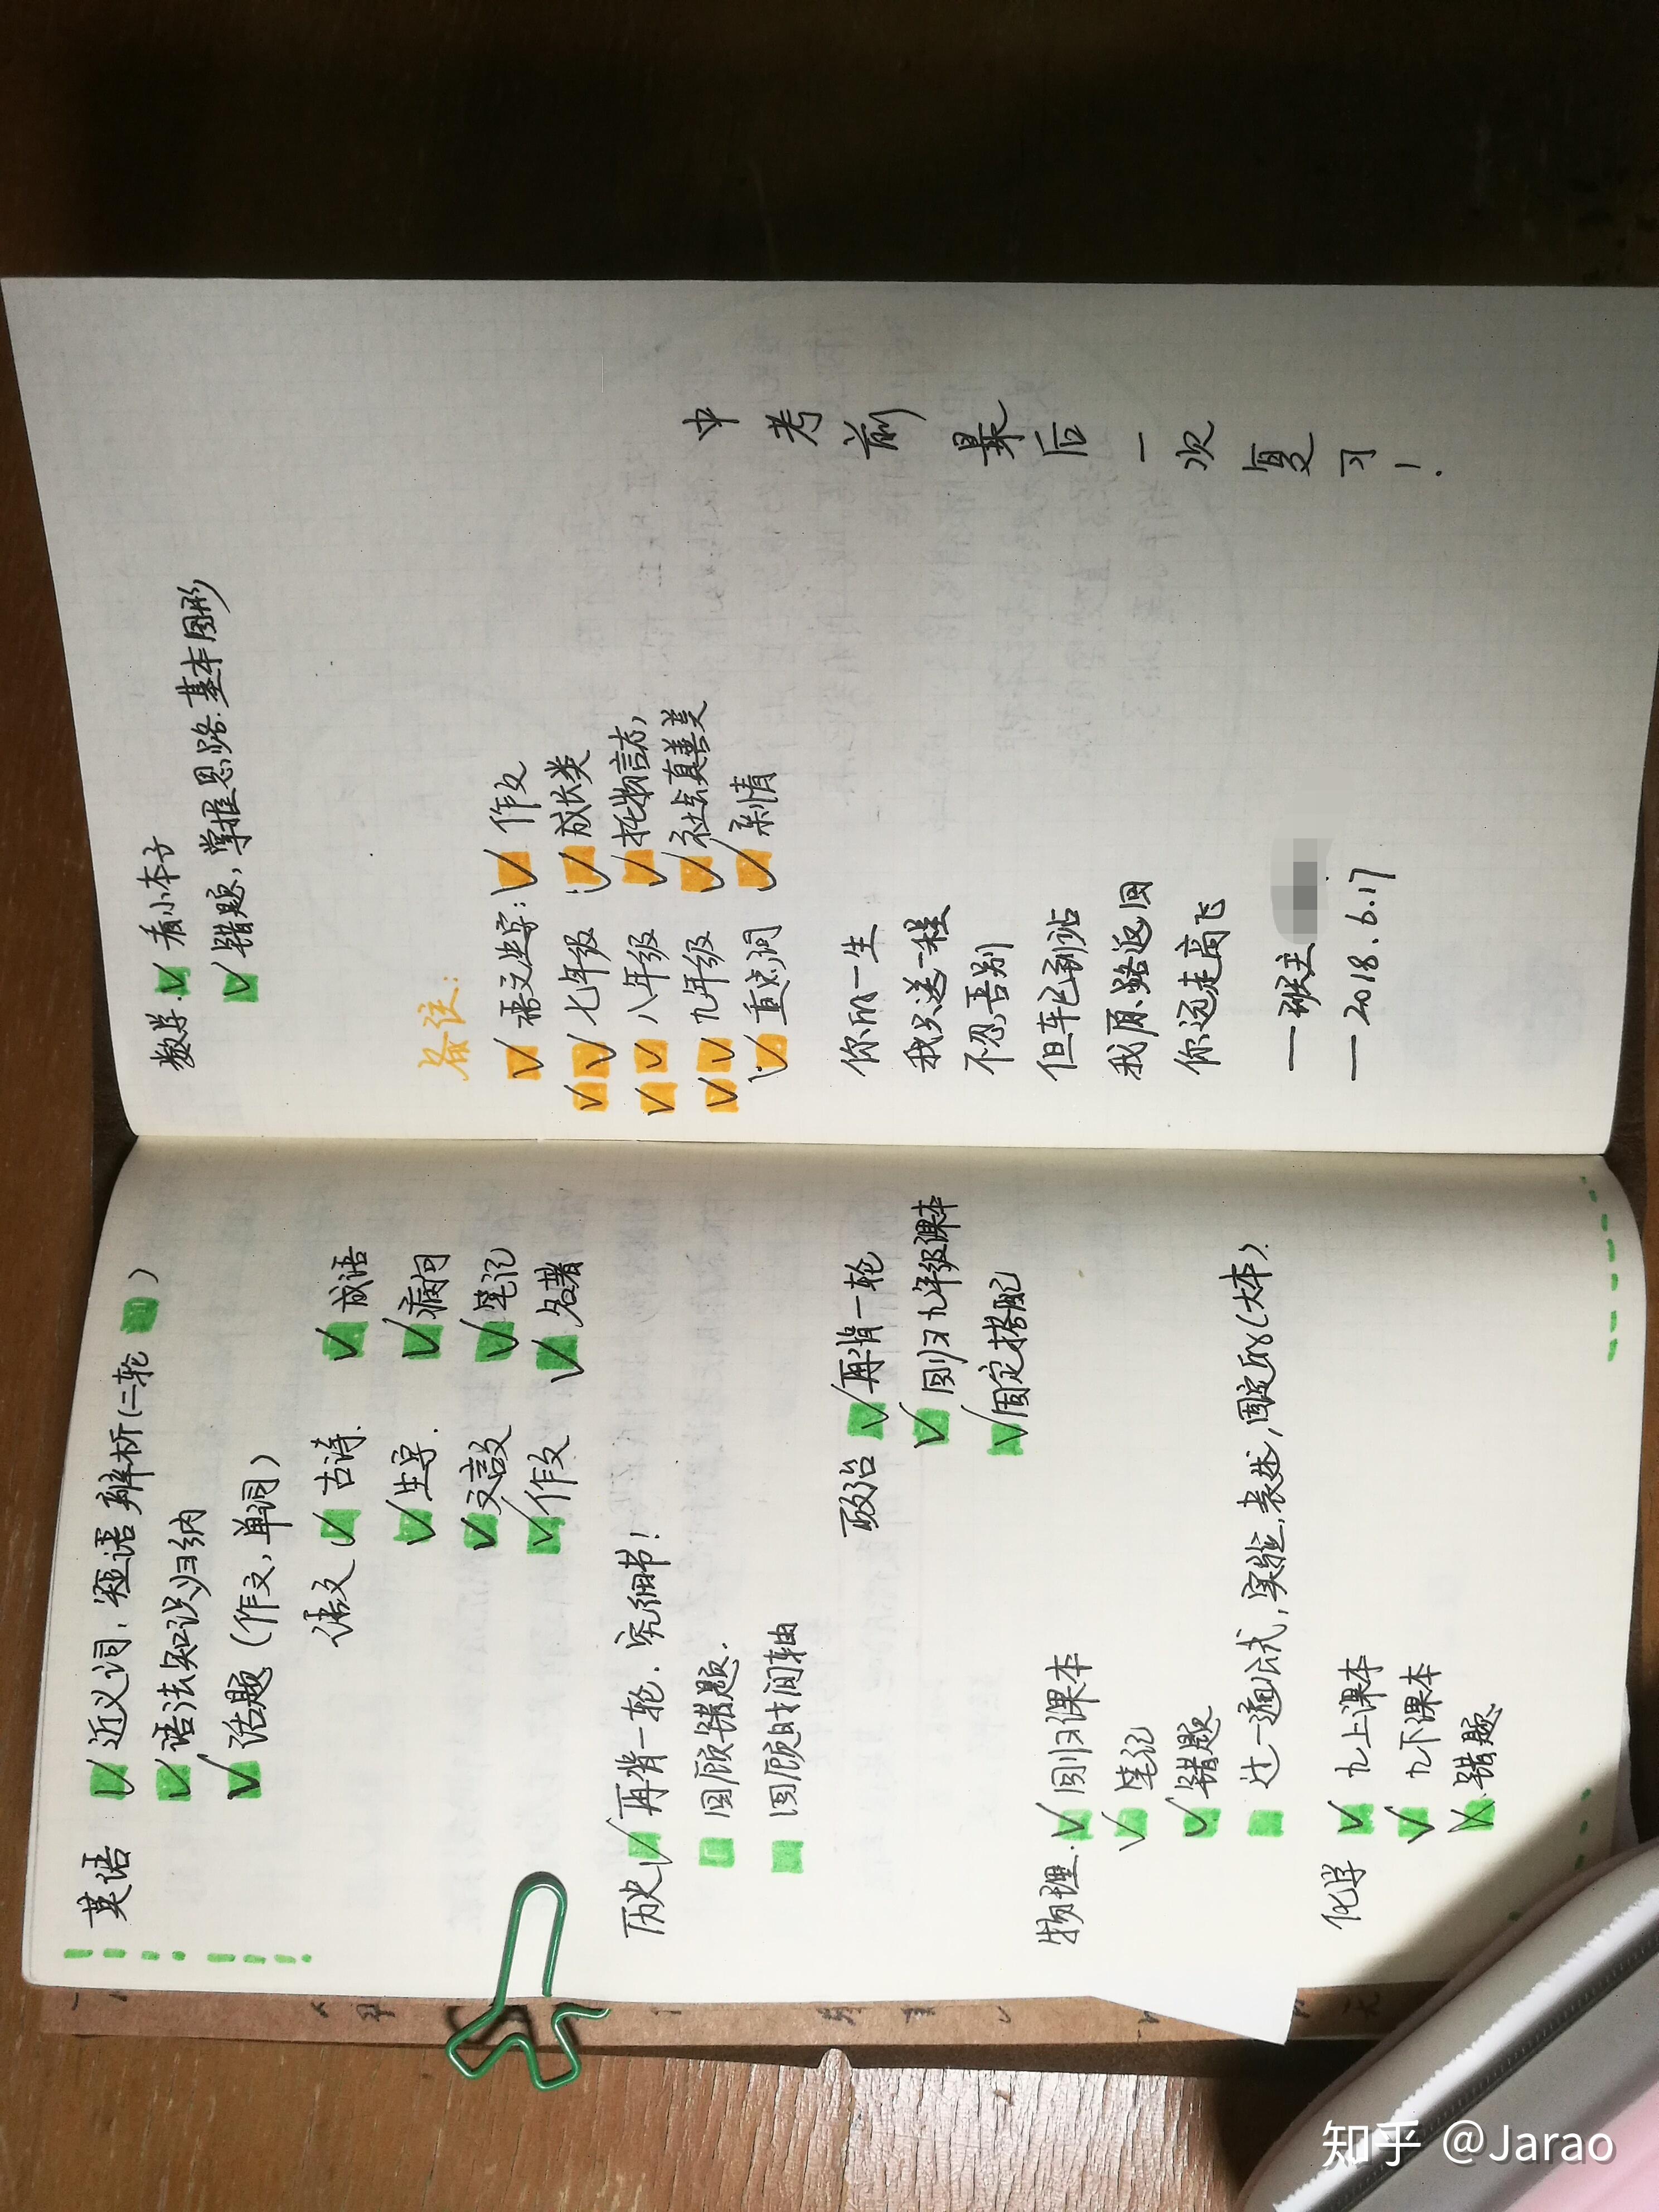 英语 近义词，短语 辨析(二轮 )
语法知识归纳
话题（作文，单词）
语文 古诗. 成语
生字. 病句
文言改 笔记
作文 名著
历史 再背一轮. 究细节！
回顾错题.
回顾时间轴
政治 再背一轮
回归九年级课本
固定搭配
物理. 回归课本
笔记
错题
过一遍试, 实验, 表述, 固定
(大本).
化学 九上课本
九下课本
错题
数学. 看小本子
错题, 掌握思路. 基本图形
备注：
语文生字： 作文
七年级 成长类
八年级 托物言志,
九年级 社会真善美
重点词 亲情
你的一生
我只送一程
不忍吾别
但车已到站
我原路返回
你远走高飞
— 班主
— 2018.6.17
中考前 最后一次复习！
知乎 @Jarao